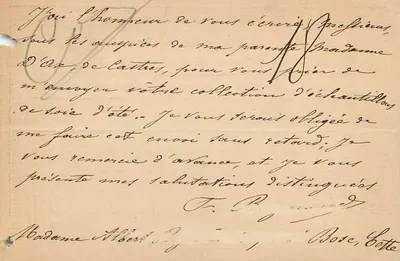 J'ai l'honneur de vous écrire, Messieurs,
sous les auspices de ma parente Madame
D'Ax de Castres, pour vous prier de
m'envoyer vôtre collection d'échantillons
de soie d'été. Je vous serais obligée de
me faire cet envoi sans retard; Je
vous remercie d'avance, et je vous
présente mes salutations distinguées
F.
Madame Albert Bosc, Cette
18